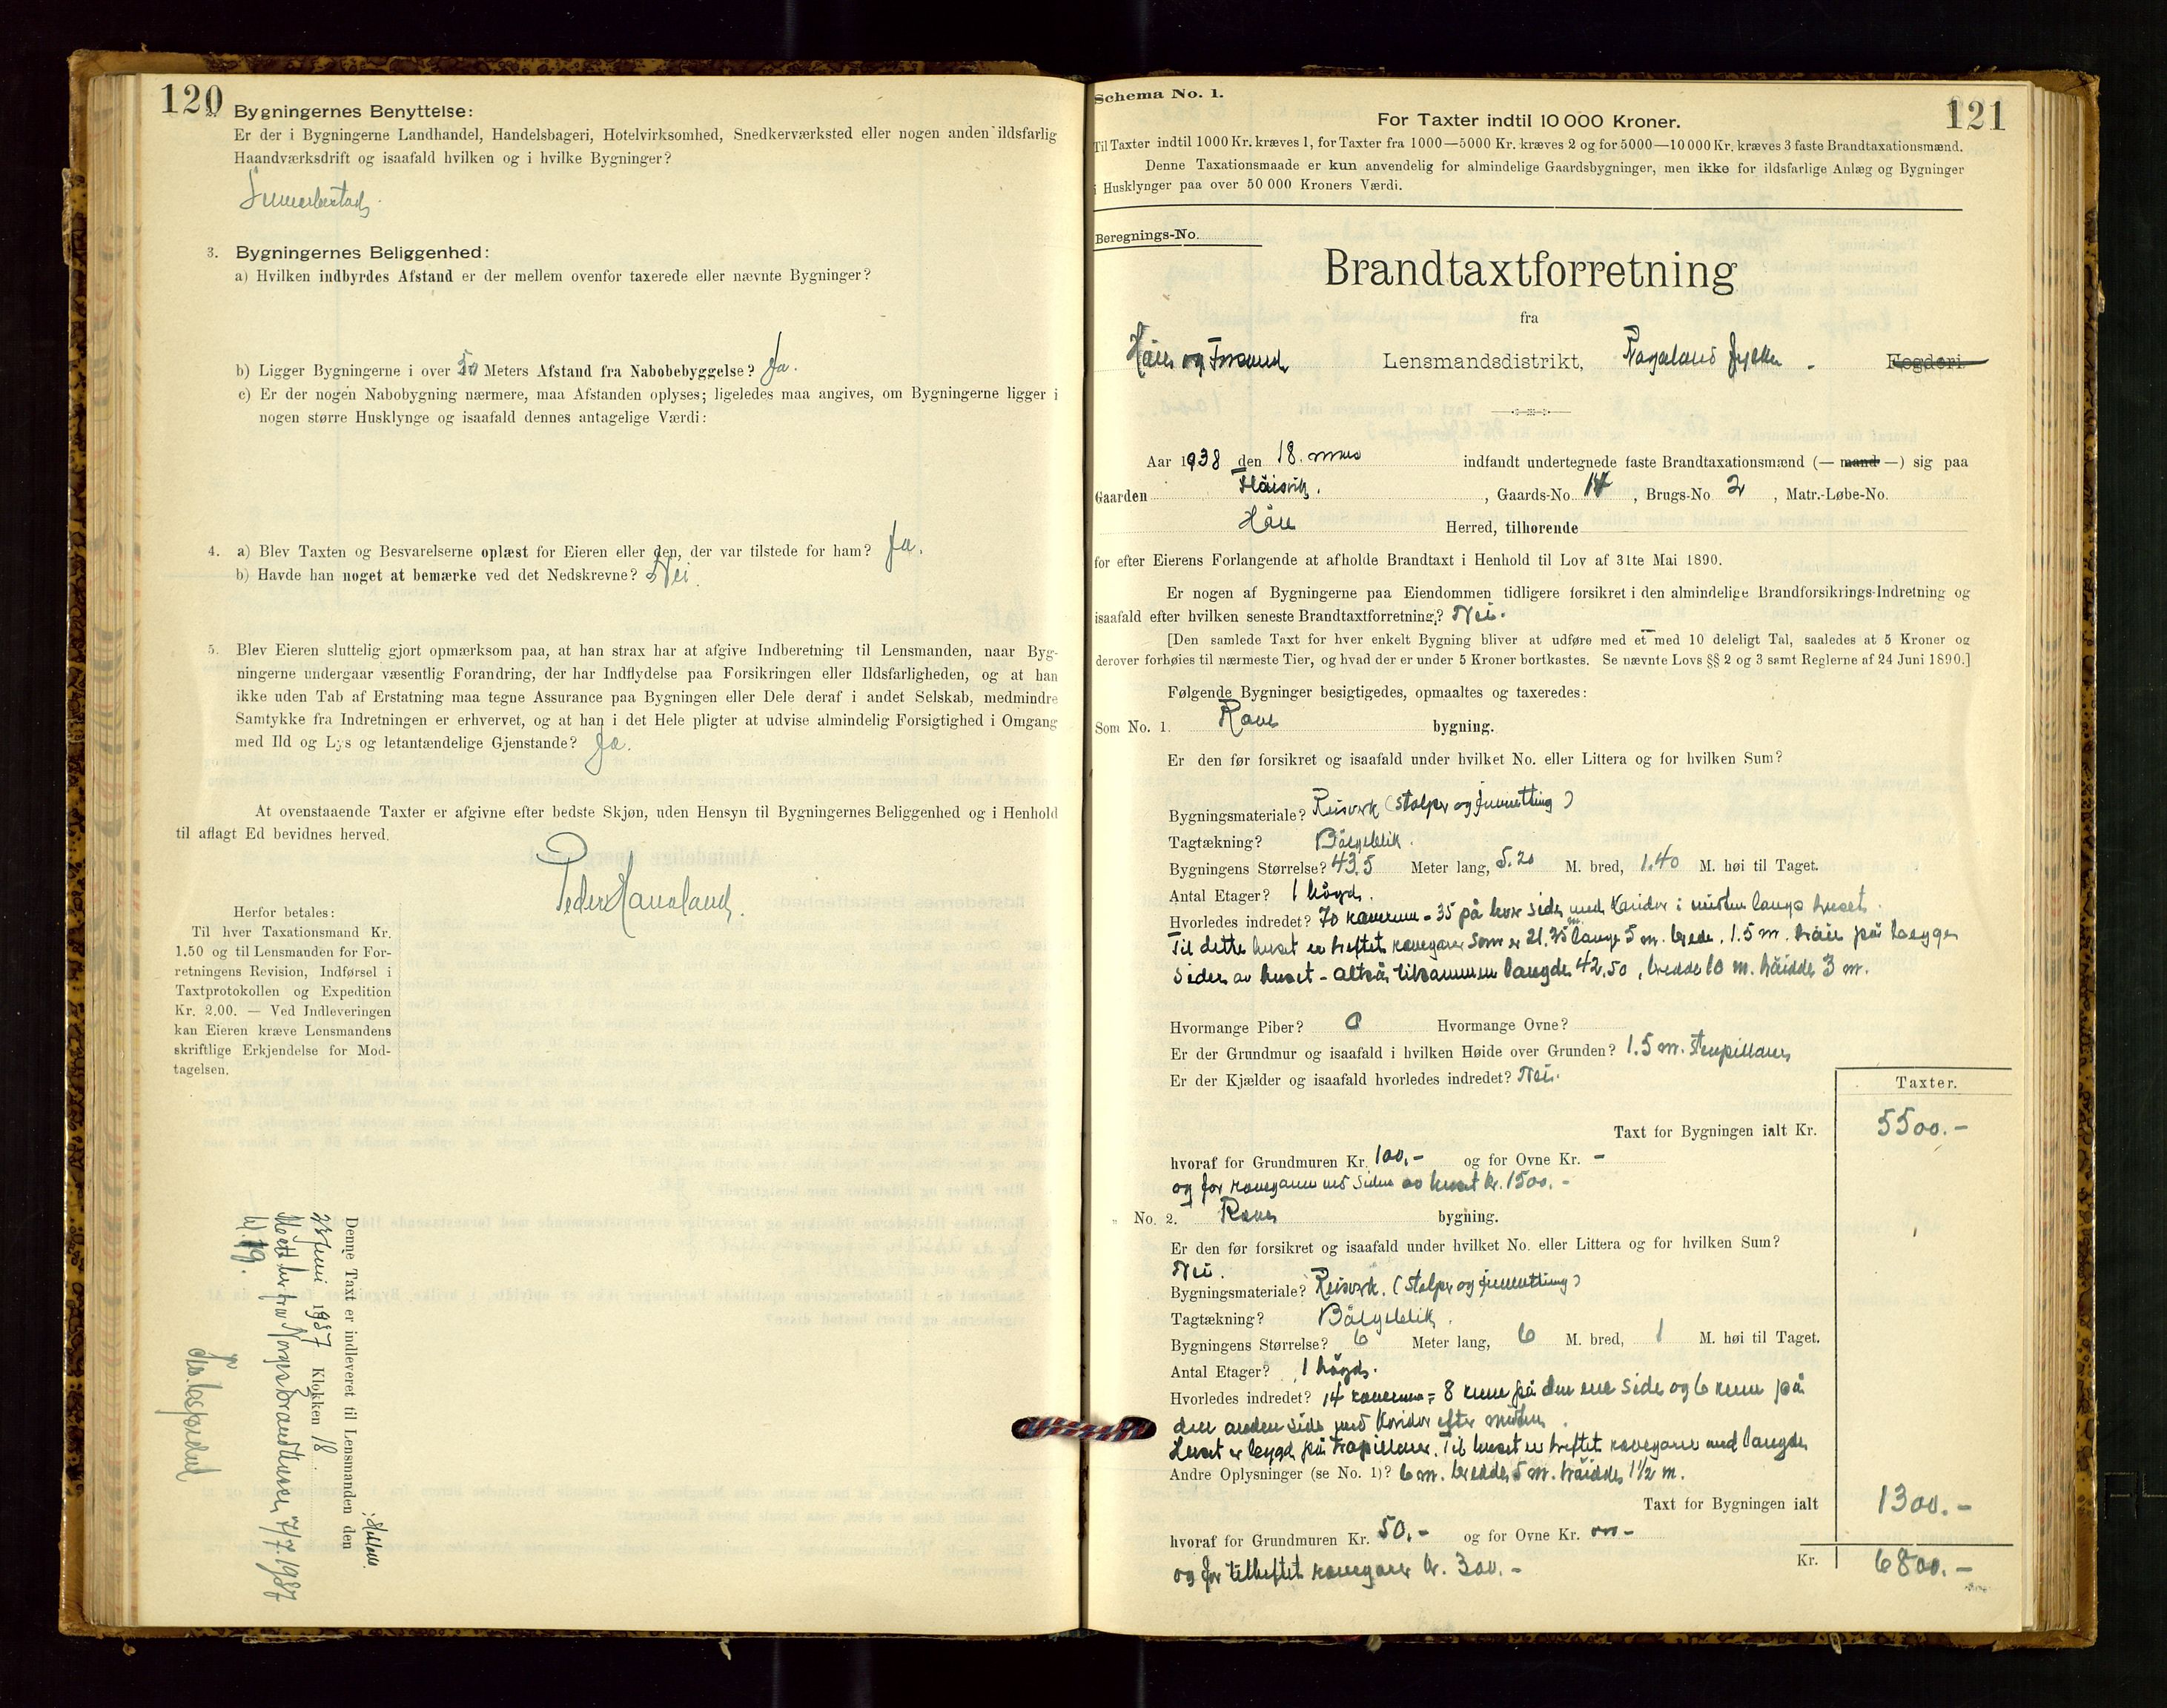 120
2. Bygningernes Benyttelse:
Er der i Bygningerne Landhandel, Handelsbageri, Hotelvirksomhed, Snedkerværksted eller nogen anden ildsfarlig
Haandværksdrift og isaafald hvilken og i hvilke Bygninger?
3. Bygningernes Beliggenhed:
a) Hvilken indbyrdes Afstand er der mellem ovenfor taxerede eller nævnte Bygninger?
b) Ligger Bygningerne i over 50 Meters Afstand fra Nabobebyggelse? Ja.
c) Er der nogen Nabobygning nærmere, maa Afstanden oplyses; ligeledes maa angives, om Bygningerne ligger i
nogen større Husklynge og isaafald dennes antagelige Værdi:
4. a) Blev Taxten og Besvarelserne oplæst for Eieren eller den, der var tilstede for ham? Ja.
b) Havde han noget at bemærke ved det Nedskrevne? Nei.
5. Blev Eieren sluttelig gjort opmærksom paa, at han strax har at afgive Indberetning til Lensmanden, naar Byg-
ningerne undergaar væsentlig Forandring, der har Indflydelse paa Forsikringen eller Ildsfarligheden, og at han
ikke uden Tab af Erstatning maa tegne Assurance paa Bygningen eller Dele deraf i andet Selskab, medmindre
Samtykke fra Indretningen er erhvervet, og at han i det Hele pligter at udvise almindelig Forsigtighed i Omgang
med Ild og Lys og letantændelige Gjenstande? Ja.
At ovenstaaende Taxter er afgivne efter bedste Skjøn, uden Hensyn til Bygningernes Beliggenhed og i Henhold
til aflagt Ed bevidnes herved.
Peder Haualand.
Herfor betales:
Til hver Taxationsmand Kr.
1.50 og til Lensmanden for For-
retningens Revision, Indførsel i
Taxtprotokollen og Expedition
Kr. 2.00. — Ved Indleveringen
kan Eieren kræve Lensmandens
skriftlige Erkjendelse for Mod-
tagelsen.
Denne Taxt er indleveret til Lensmanden den
Juni 1937 Klokken 18.
Norges Brandkasse 7/7 1937
121
Schema No. 1.
For Taxter indtil 10 000 Kroner.
Til Taxter indtil 1000 Kr. kræves 1, for Taxter fra 1000—5000 Kr. kræves 2 og for 5000—10 000 Kr. kræves 3 faste Brandtaxationsmænd.
Denne Taxationsmaade er kun anvendelig for almindelige Gaardsbygninger, men ikke for ildsfarlige Anlæg og Bygninger
i Husklynger paa over 50 000 Kroners Værdi.
Beregnings-No.
Brandtaxtforretning
fra
Høle og Forsand Lensmandsdistrikt, Rogaland fylke - Fogderi
Aar 1938 den 18. mars indfandt undertegnede faste Brandtaxationsmænd (— mand —) sig paa
Gaarden Høisvik. , Gaards-No. 14 , Brugs-No 2 , Matr.-Løbe-No.
Høle Herred, tilhørende
for efter Eierens Forlangende at afholde Brandtaxt i Henhold til Lov af 31te Mai 1890.
Er nogen af Bygningerne paa Eiendommen tidligere forsikret i den almindelige Brandforsikrings-Indretning og
isaafald efter hvilken seneste Brandtaxtforretning? Nei.
[Den samlede Taxt for hver enkelt Bygning bliver at udføre med et med 10 deleligt Tal, saaledes at 5 Kroner og
derover forhøies til nærmeste Tier, og hvad der er under 5 Kroner bortkastes. Se nævnte Lovs §§ 2 og 3 samt Reglerne af 24 Juni 1890.]
Følgende Bygninger besigtigedes, opmaaltes og taxeredes:
Som No. 1. Reve bygning.
Er den før forsikret og isaafald under hvilket No. eller Littera og for hvilken Sum?
Bygningsmateriale? Reisverk (stolper og finnetting)
Tagtækning? Bølgeblik.
Bygningens Størrelse? 43,5 Meter lang, 5.20 M. bred, 1.40 M. høi til Taget.
Antal Etager? 1 høgd.
Hvorledes indredet? 70 reverum = 35 på hver side med Koridor i midten langs huset.
Til dette huset er heftet revegarer som er 21.25 m lange 5 m. brede, 1.5 m. høie på begge
sider av huset - altså tilsammen lengde 42,50, bredde 10 m. høidde 3 m.
Hvormange Piber? 0 Hvormange Ovne?
Er der Grundmur og isaafald i hvilken Høide over Grunden? 1.5 m. stenpillarer
Er der Kjælder og isaafald hvorledes indredet? Nei.
Taxter.
Taxt for Bygningen ialt Kr. 5500.-
hvoraf for Grundmuren Kr. 100.- og for Ovne Kr. -
og for revegarer ved siden av huset kr. 1500.-
" No. 2. Reve bygning.
Er den før forsikret og isaafald under hvilket No. eller Littera og for hvilken Sum?
Nei.
Bygningsmateriale? Reisverk. (stolper og finnetting)
Tagtækning? Bølgeblik.
Bygningens Størrelse? 6 Meter lang, 6 M. bred, 1 M. høi til Taget.
Antal Etager? 1 høgd.
Hvorledes indredet? 14 reverum = 8 rum på den ene side og 6 rum på
den anden side med Koridor efter midten.
Huset er bygd på trepillarer. Til huset er heftet revegarer med lengde
Andre Oplysninger (se No. 1)? 6 m. bredde 5 m. høidde 1½ m.
Taxt for Bygningen ialt 1300.-
hvoraf for Grundmuren Kr. 50.- og for Ovne Kr. -
og for tilheftet revegarer kr. 300.-
Kr. 6800.-